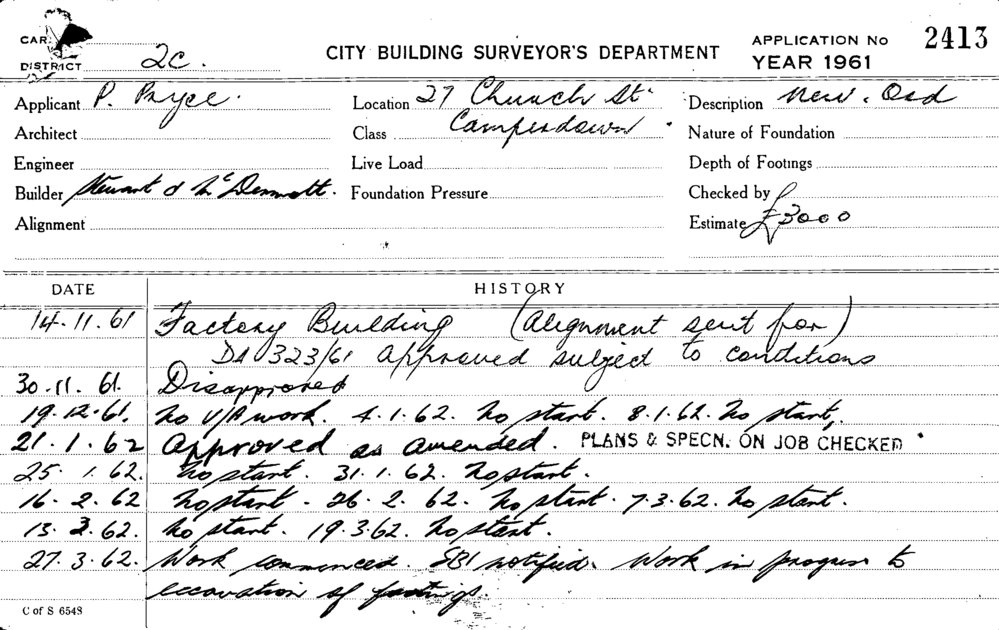 CITY BUILDING SURVEYOR'S DEPARTMENT
CAR.
DISTRICT 2C.
APPLICATION No 2413
YEAR 1961
Applicant P. Pryce. Location 27 Church St. Description New. Ord
Architect Class Camperdown Nature of Foundation
Engineer Live Load Depth of Footings
Builder Stewart & McDermott. Foundation Pressure Checked by
Alignment Estimate £3000
DATE HISTORY
14.11.61 Factory Building (Alignment sent for)
DA 323/61 approved subject to conditions
30.11.61. Disapproved
19.12.61. No U/A work. 4.1.62. No start. 8.1.62. No start,
21.1.62 Approved as amended. PLANS & SPECN. ON JOB CHECKED
25.1.62. No start. 31.1.62. No start.
16.2.62 No start. 26.2.62. No start. 7.3.62. No start.
13.3.62. No start. 19.3.62. No start.
27.3.62. Work commenced. SBI notified. Work in progress to
excavation of footings.
C of S 6548